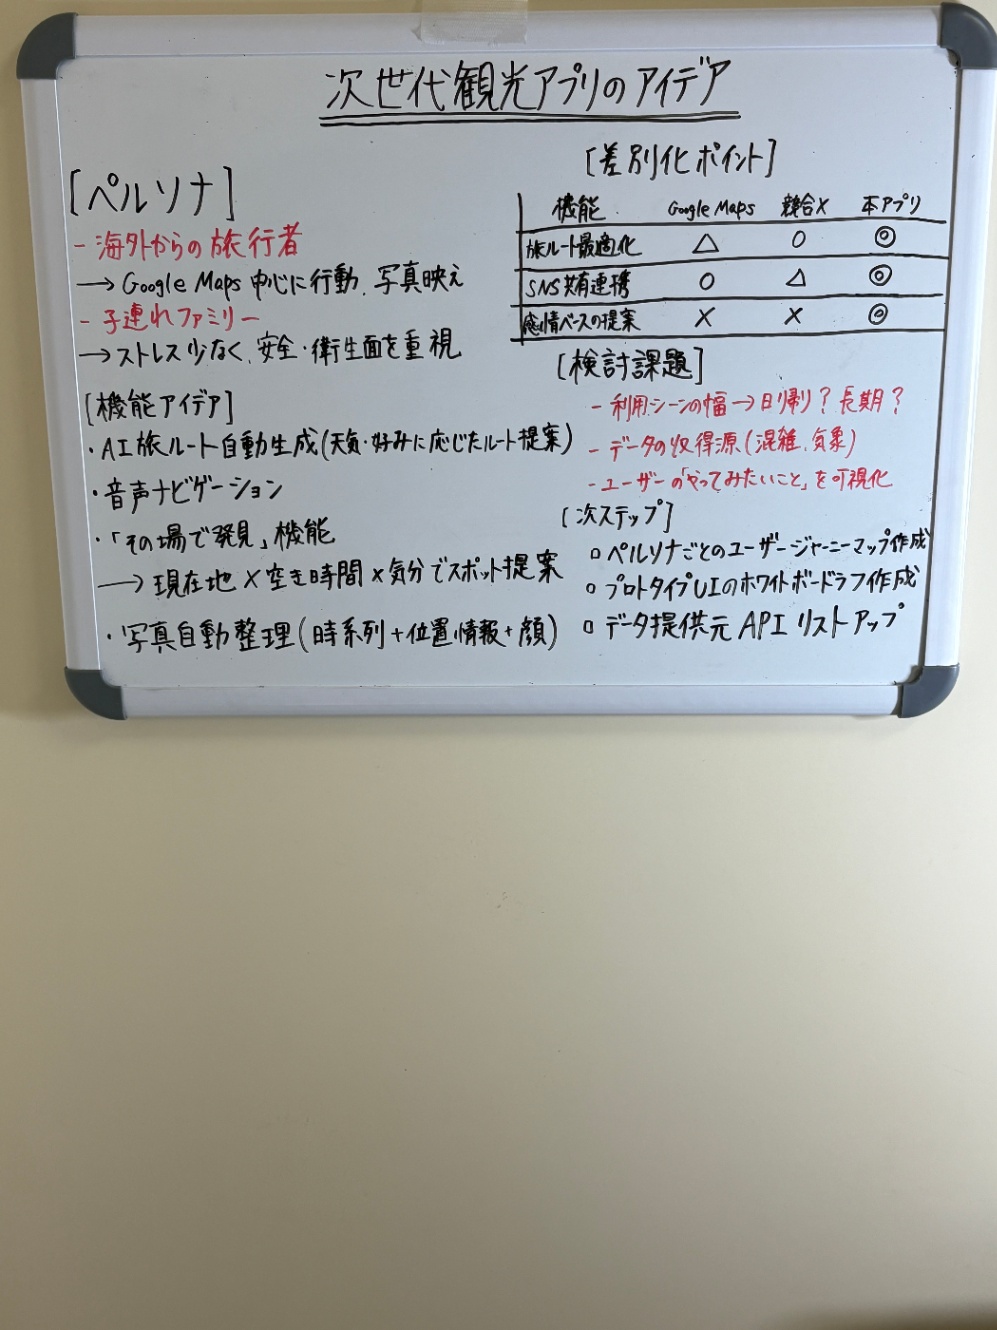 次世代観光アプリのアイデア
[ペルソナ]
- 海外からの旅行者
→ Google Maps 中心に行動、写真映え
- 子連れファミリー
→ ストレス少なく、安全・衛生面を重視
[機能アイデア]
・AI旅ルート自動生成(天気・好みに応じたルート提案)
・音声ナビゲーション
・「その場で発見」機能
→ 現在地×空き時間×気分でスポット提案
・写真自動整理(時系列+位置情報+顔)
[差別化ポイント]
機能 Google Maps 競合X 本アプリ
旅ルート最適化 △ ○ ◎
SNS共有連携 ○ △ ◎
感情ベースの提案 × × ◎
[検討課題]
- 利用シーンの幅→日帰り?長期?
- データの収得源(混雑、気象)
- ユーザーの「やってみたいこと」を可視化
[次ステップ]
○ ペルソナごとのユーザージャーニーマップ作成
○ プロトタイプUIのホワイトボードラフ作成
○ データ提供元APIリストアップ